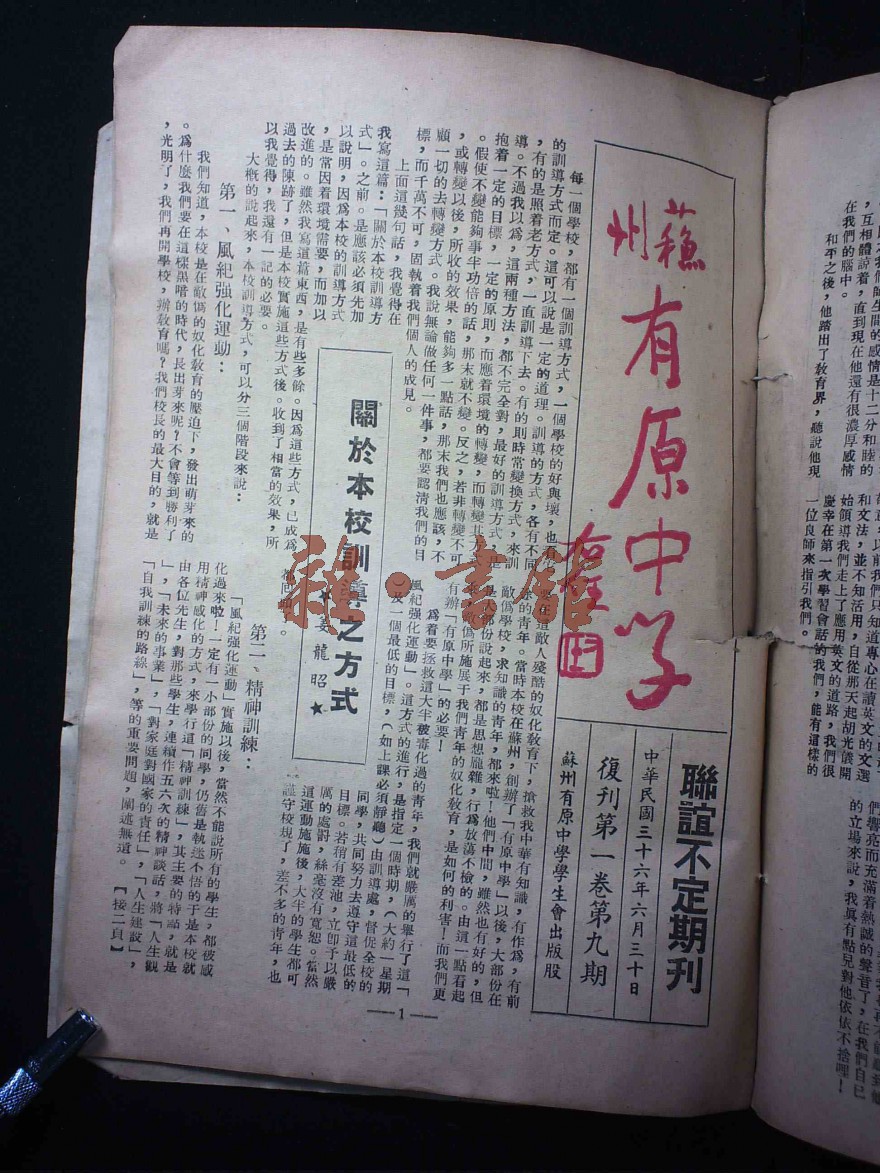 蘇州
有原中學
聯誼不定期刊
中華民國三十六年六月三十日
復刊第一卷第九期
蘇州有原中學學生會出版股
關於本校訓導之方式
姜龍昭★
每一個學校,都有一個訓導方式,一個學校的好與壞,也有
的訓導方式而定。這可以說是一定的道理。訓導的方式,各有不同
,有的是照着老方式,一直訓導下去。有的則時常變換方式,來訓
導。不過我以為,這兩種方法,都不完全對,最好的訓導方式,是
抱着一定的目標,一定的原則,而應着環境的轉變,而轉變其方式
。假使不變能夠事半功倍的話,那末就不變。反之,若非轉變不可
,或轉變以後,所收的效果,能夠多一點話,那末我們也應該,不
顧一切的去轉變方式。我說無論做任何一件事,都要認清我們的目
標,而千萬不可,固執着我們個人的成見。
上面這幾句話,我覺得在
我寫這篇:「關於本校訓導方
式」。之前。是應該必須先加
以說明,因爲本校的訓導方式
,是常因着環境需要,而加以
改進的。雖然我寫這篇東西,是有些多餘。因爲這些方式,已成爲
過去的陳跡了,但是本校實施這些方式後。收到了相當的效果,所
以我覺得,我還有一記的必要。
大槪的說起來,本校訓導方式,可以分三個階段來說:
第一、風紀强化運動:
我們知道,本校是在敵僞的奴化敎育的壓迫下,發出萌芽來的
。爲什麼我們要在這樣黑暗的時代,長出芽來呢?不會等到勝利了
,光明了,我們再開學校,辦敎育嗎?我們校長的最大目的,就是
要在這敵人殘酷的奴化敎育下,搶救我中華有知識,有作爲,有前
途的青年。當時本校在蘇州,創辦了「有原中學」以後,大部份在
敵僞學校,求知識的青年,都來啦!他們中間,雖然也有好的,但
是大部份說起來,都是思想龐雜,行爲放蕩不檢的。由這一點看起
來,敵僞所施展于我們青年的奴化敎育,是如何的利害!而我們更
有辦「有原中學」的必要!
爲着要拯救這大半被毒化過的青年,我們就嚴厲的舉行了這「
風紀強化運動」。這方式的進行,是指定一個時期,(大約一星期
)及一個最低的目標,(如上課必須靜聽)由訓導處,督促全校的
同學,共同努力去遵守這最低的
目標。若稍有差池,立卽予以嚴
厲的處罰,絲毫沒有寬恕。當然
這運動施施後,大半的學生都可
謹守校規了,差不多的青年,也
都向
第二、精神訓練:
「風紀强化運動」實施以後,當然不能說所有的學生,都被感
化過來啦!一定有一小部份的同學,仍舊是執迷不悟的于是本校就
用精神感化的方式,來學行這「精神訓練」,其主要的特點,就是
由各位先生,對那些學生,連續作五六次的精神談話,將「人生觀
」,「未來的事業」,「對家庭對國家的責任」,「人生建設」,
「自我訓練的路線」,等的重要問題,闡述無遺。【接二頁】
—1—
雜·書館
師生間的感情是十二分和睦的
,互相體諒着,直到現在他還有很濃厚感情
在我們的腦中。
和平之後,他踏出了敎育界,聽說他現
以前我們只知道專心在讀英文的文選
和文法,並不知活用,自從那天起胡光儀開
始領導我們走上了應用英文的道路,我們很
慶幸在第一次學習會話的我們,能有這樣的
一位良師來指引我們。
們響亮而充滿着熱誠的聲音了,在我們自己
的立場來說,我眞有點兒對他依依不捨哩!